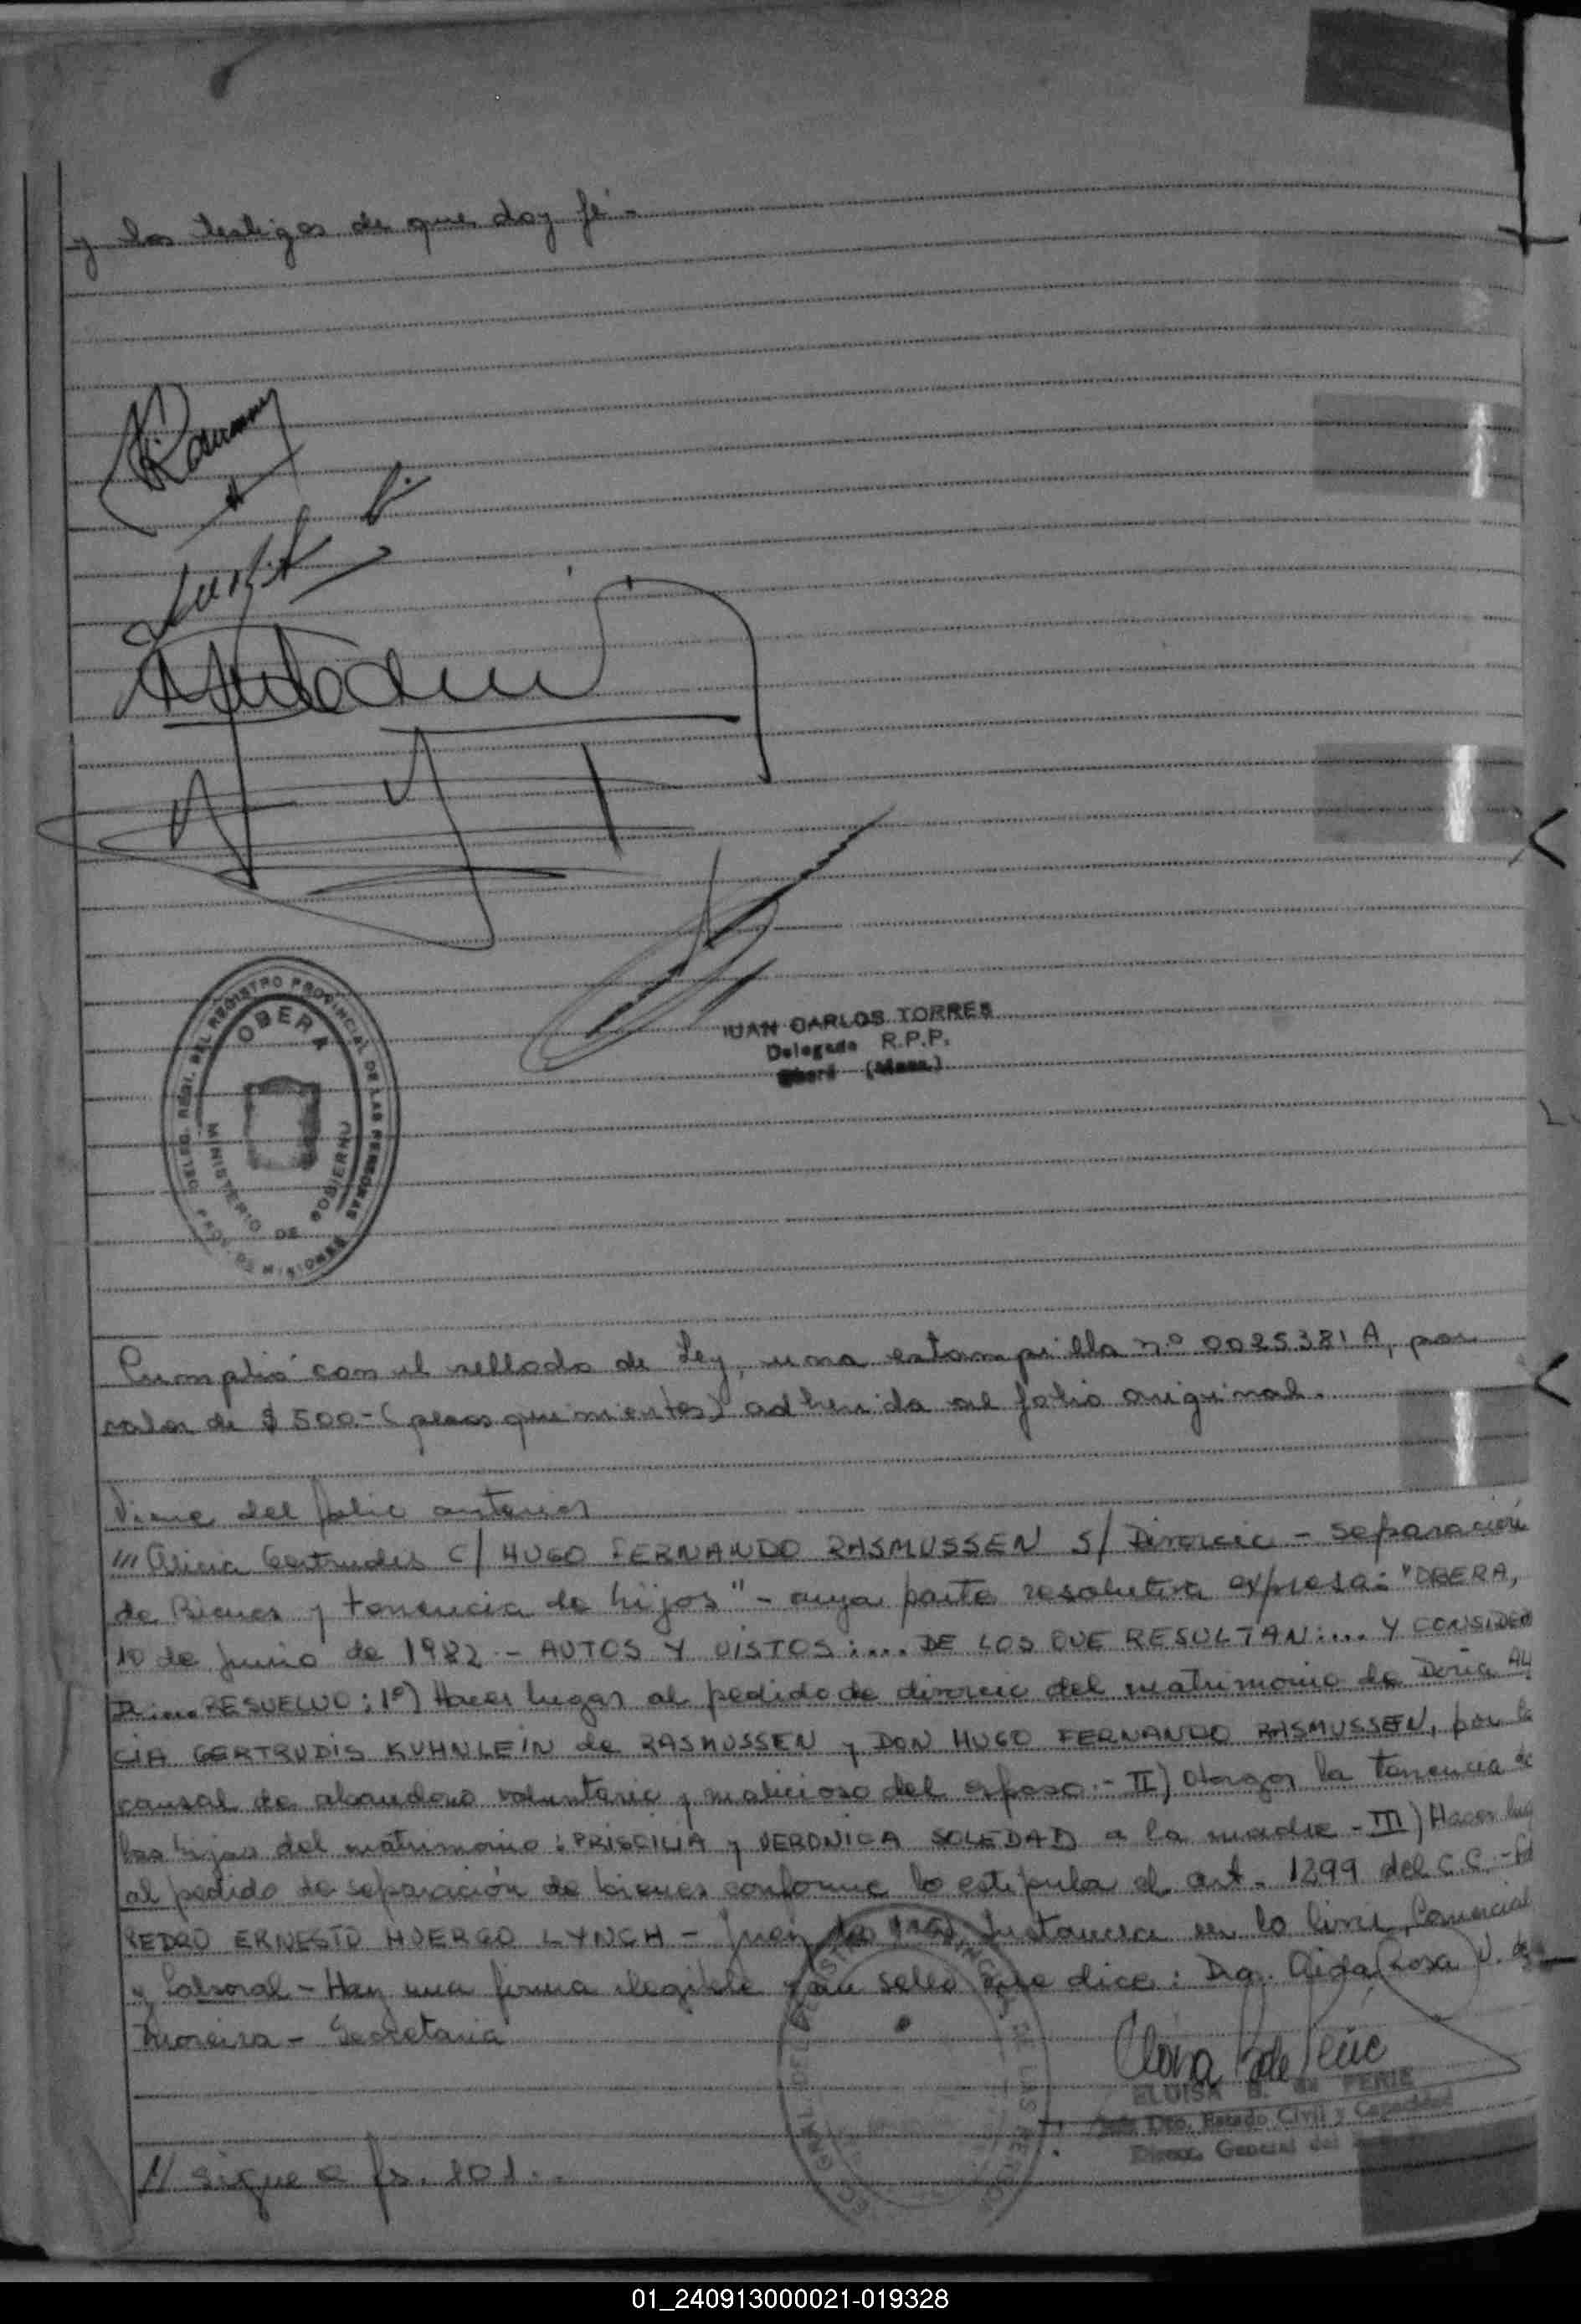 y los testigos de que doy fé -
JUAN CARLOS TORRES
Delegado R.P.P.
Oberá (Mnes.)
DELEG. REGI. DEL REGISTRO PROVINCIAL DE LAS PERSONAS
OBERA
MINISTERIO DE GOBIERNO
PROV. DE MISIONES
Cumplió con el sellado de Ley, una estampilla nº 0025381 A, por
valor de $ 500.- (pesos quinientos) adherida al folio original.
Viene del folio anterior
/// Alicia Gertrudis C/ HUGO FERNANDO RASMUSSEN S/ Divorcio - separación
de Bienes y tenencia de hijos" - cuya parte resolutiva expresa: "OBERA,
10 de junio de 1982 - AUTOS Y VISTOS:... DE LOS QUE RESULTAN:... Y CONSIDE
RESUELVO: 1º) Hacer lugar al pedido de divorcio del matrimonio de Doña ALI
CIA GERTRUDIS KUHNLEIN de RASMUSSEN y DON HUGO FERNANDO RASMUSSEN, por la
causal de abandono voluntario y malicioso del esposo.- II) Otorgar la tenencia de
las hijas del matrimonio: PRISCILIA y VERONICA SOLEDAD a la madre - III) Hacer lug
al pedido de separación de bienes conforme lo estipula el art. 1299 del C.C. - Fd
PEDRO ERNESTO HUERGO LYNCH - Juez de 1ra. Instancia en lo Civil, Comercial
y Laboral - Hay una firma ilegible y un sello que dice: Dra. Aida Rosa V. de
Moreira - Secretaria
ELOISA B. de PERIE
Jefe Dto. Estado Civil y Capacidad
Direcc. General del
// sigue a fs. 101.-
01_240913000021-019328